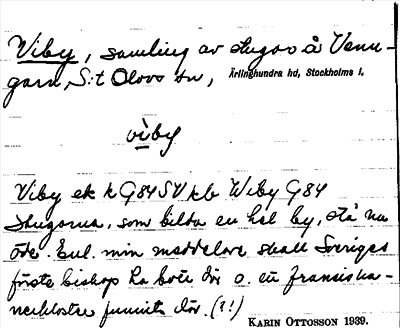 Viby, samling av stugor å Venn-
garn, S:t Olovs sn, Ärlinghundra hd, Stockholms l.
viby
Viby ek k G84SV kb Wiby G84
Stugorna, som bilda en hel by, stå nu
öde. Enl. min meddelare skall Sveriges
förste biskop ha bott där o. ett fransiska-
nerkloster funnits där. (?!)
KARIN OTTOSSON 1939.